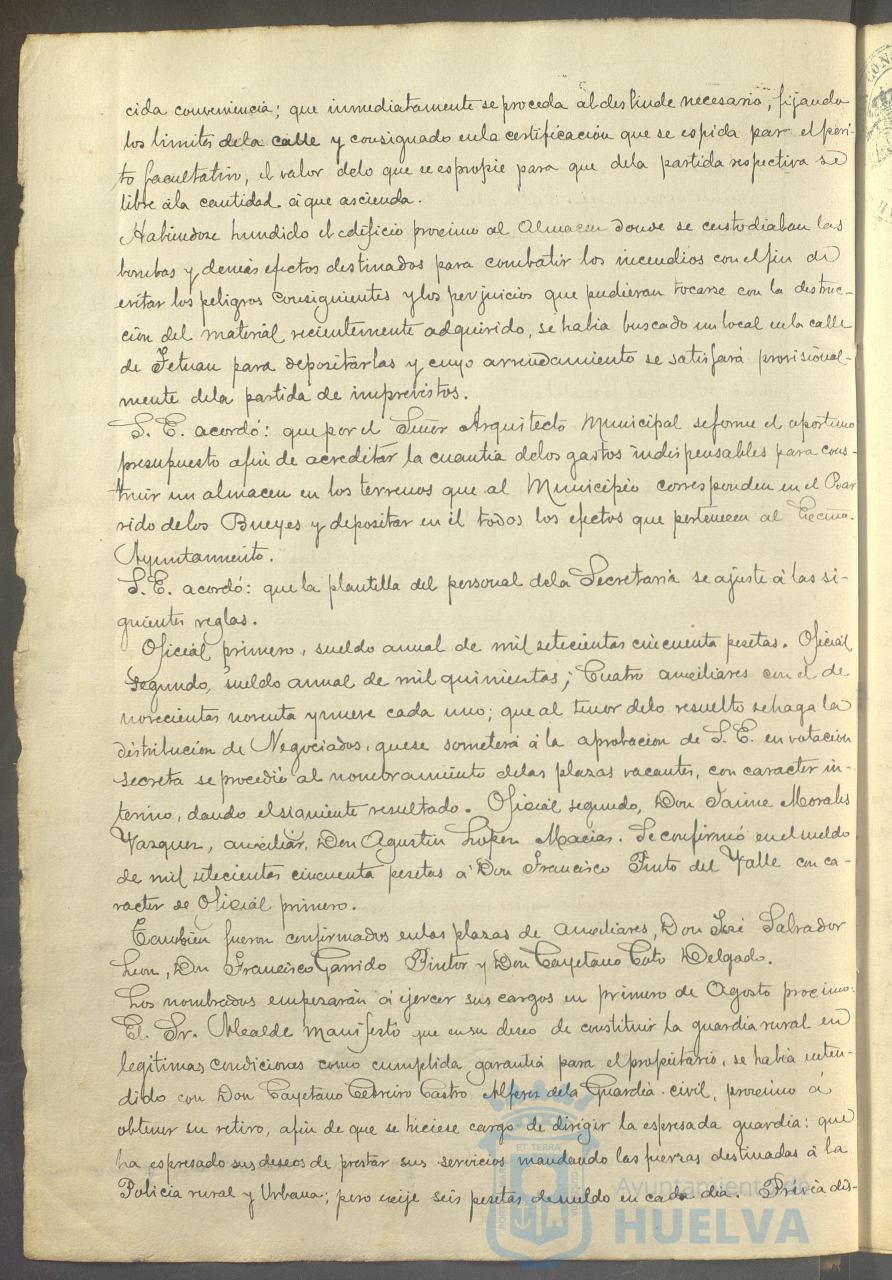 cida conveniencia; que inmediatamente se proceda al deslinde necesario, fijando
los limites dela calle y consignado enla certificación que se espida por el peri-
to facultativo, el valor delo que se espropie para que dela partida respectiva se
libre ála cantidad á que ascienda.
Habiendose hundido el edificio procimo al Almacen donde se custodiaban las
bombas y demás efectos destinados para combatir los incendios con el fin de
evitar los peligros consiguientes y los perjuicios que pudieran tocarse con la destruc-
ción del material recientemente adquirido, se habia buscado un local en la calle
de Tetuan para depositarlas y cuyo arrendamiento se satisfará provisional-
mente dela partida de imprevistos.
S. E. acordó: que por el Señor Arquitecto Municipal se forme el oportuno
presupuesto afin de acreditar la cuantia delos gastos indispensables para cons-
truir un almacen en los terrenos que al Municipio corresponden en el Bar
rido delos Bueyes y depositar en él todos los efectos que pertenecen al Excmo.
Ayuntamiento.
S. E. acordó: que la plantilla del personal dela Secretaria se ajuste á las si-
guientes reglas.
Oficial primero, sueldo anual de mil setecientas cincuenta pesetas. Oficial
segundo, sueldo anual de mil quinientas; Cuatro auxiliares con el de
novecientas noventa y nueve cada uno; que al tenor delo resuelto se haga la
distribución de Negociados, que se someterá á la aprobacion de S. E. en votacion
secreta se procedió al nombramiento delas plazas vacantes, con caracter in-
terino, dando el siguiente resultado. Oficial segundo, Don Jaime Morales
Vazquez, auxiliar, Don Agustin Lopez Macias. Se confirmó en el sueldo
de mil setecientas cincuenta pesetas á Don Francisco Pinto del Valle con ca-
racter de Oficial primero.
Tambien fueron confirmados enlas plazas de auxiliares, Don José Salvador
Leon, Don Francisco Garrido Pintor y Don Cayetano Coto Delgado.
Los nombrados empezarán á ejercer sus cargos en primero de Agosto procimo.
El Sr. Alcalde manifestó que en su deseo de constituir la guardia rural en
legitimas condiciones como cumplida garantia para el propietario, se habia enten-
dido con Don Cayetano Cebreiro Castro Alferez dela Guardia civil, procimo á
obtener su retiro, afin de que se hiciese cargo de dirigir la espresada guardia: que
ha espresado sus deseos de prestar sus servicios mandando las fuerzas destinadas á la
Policia rural y Urbana; pero exije seis pesetas desueldo en cada dia. Previa dis-
Ayuntamiento de
HUELVA